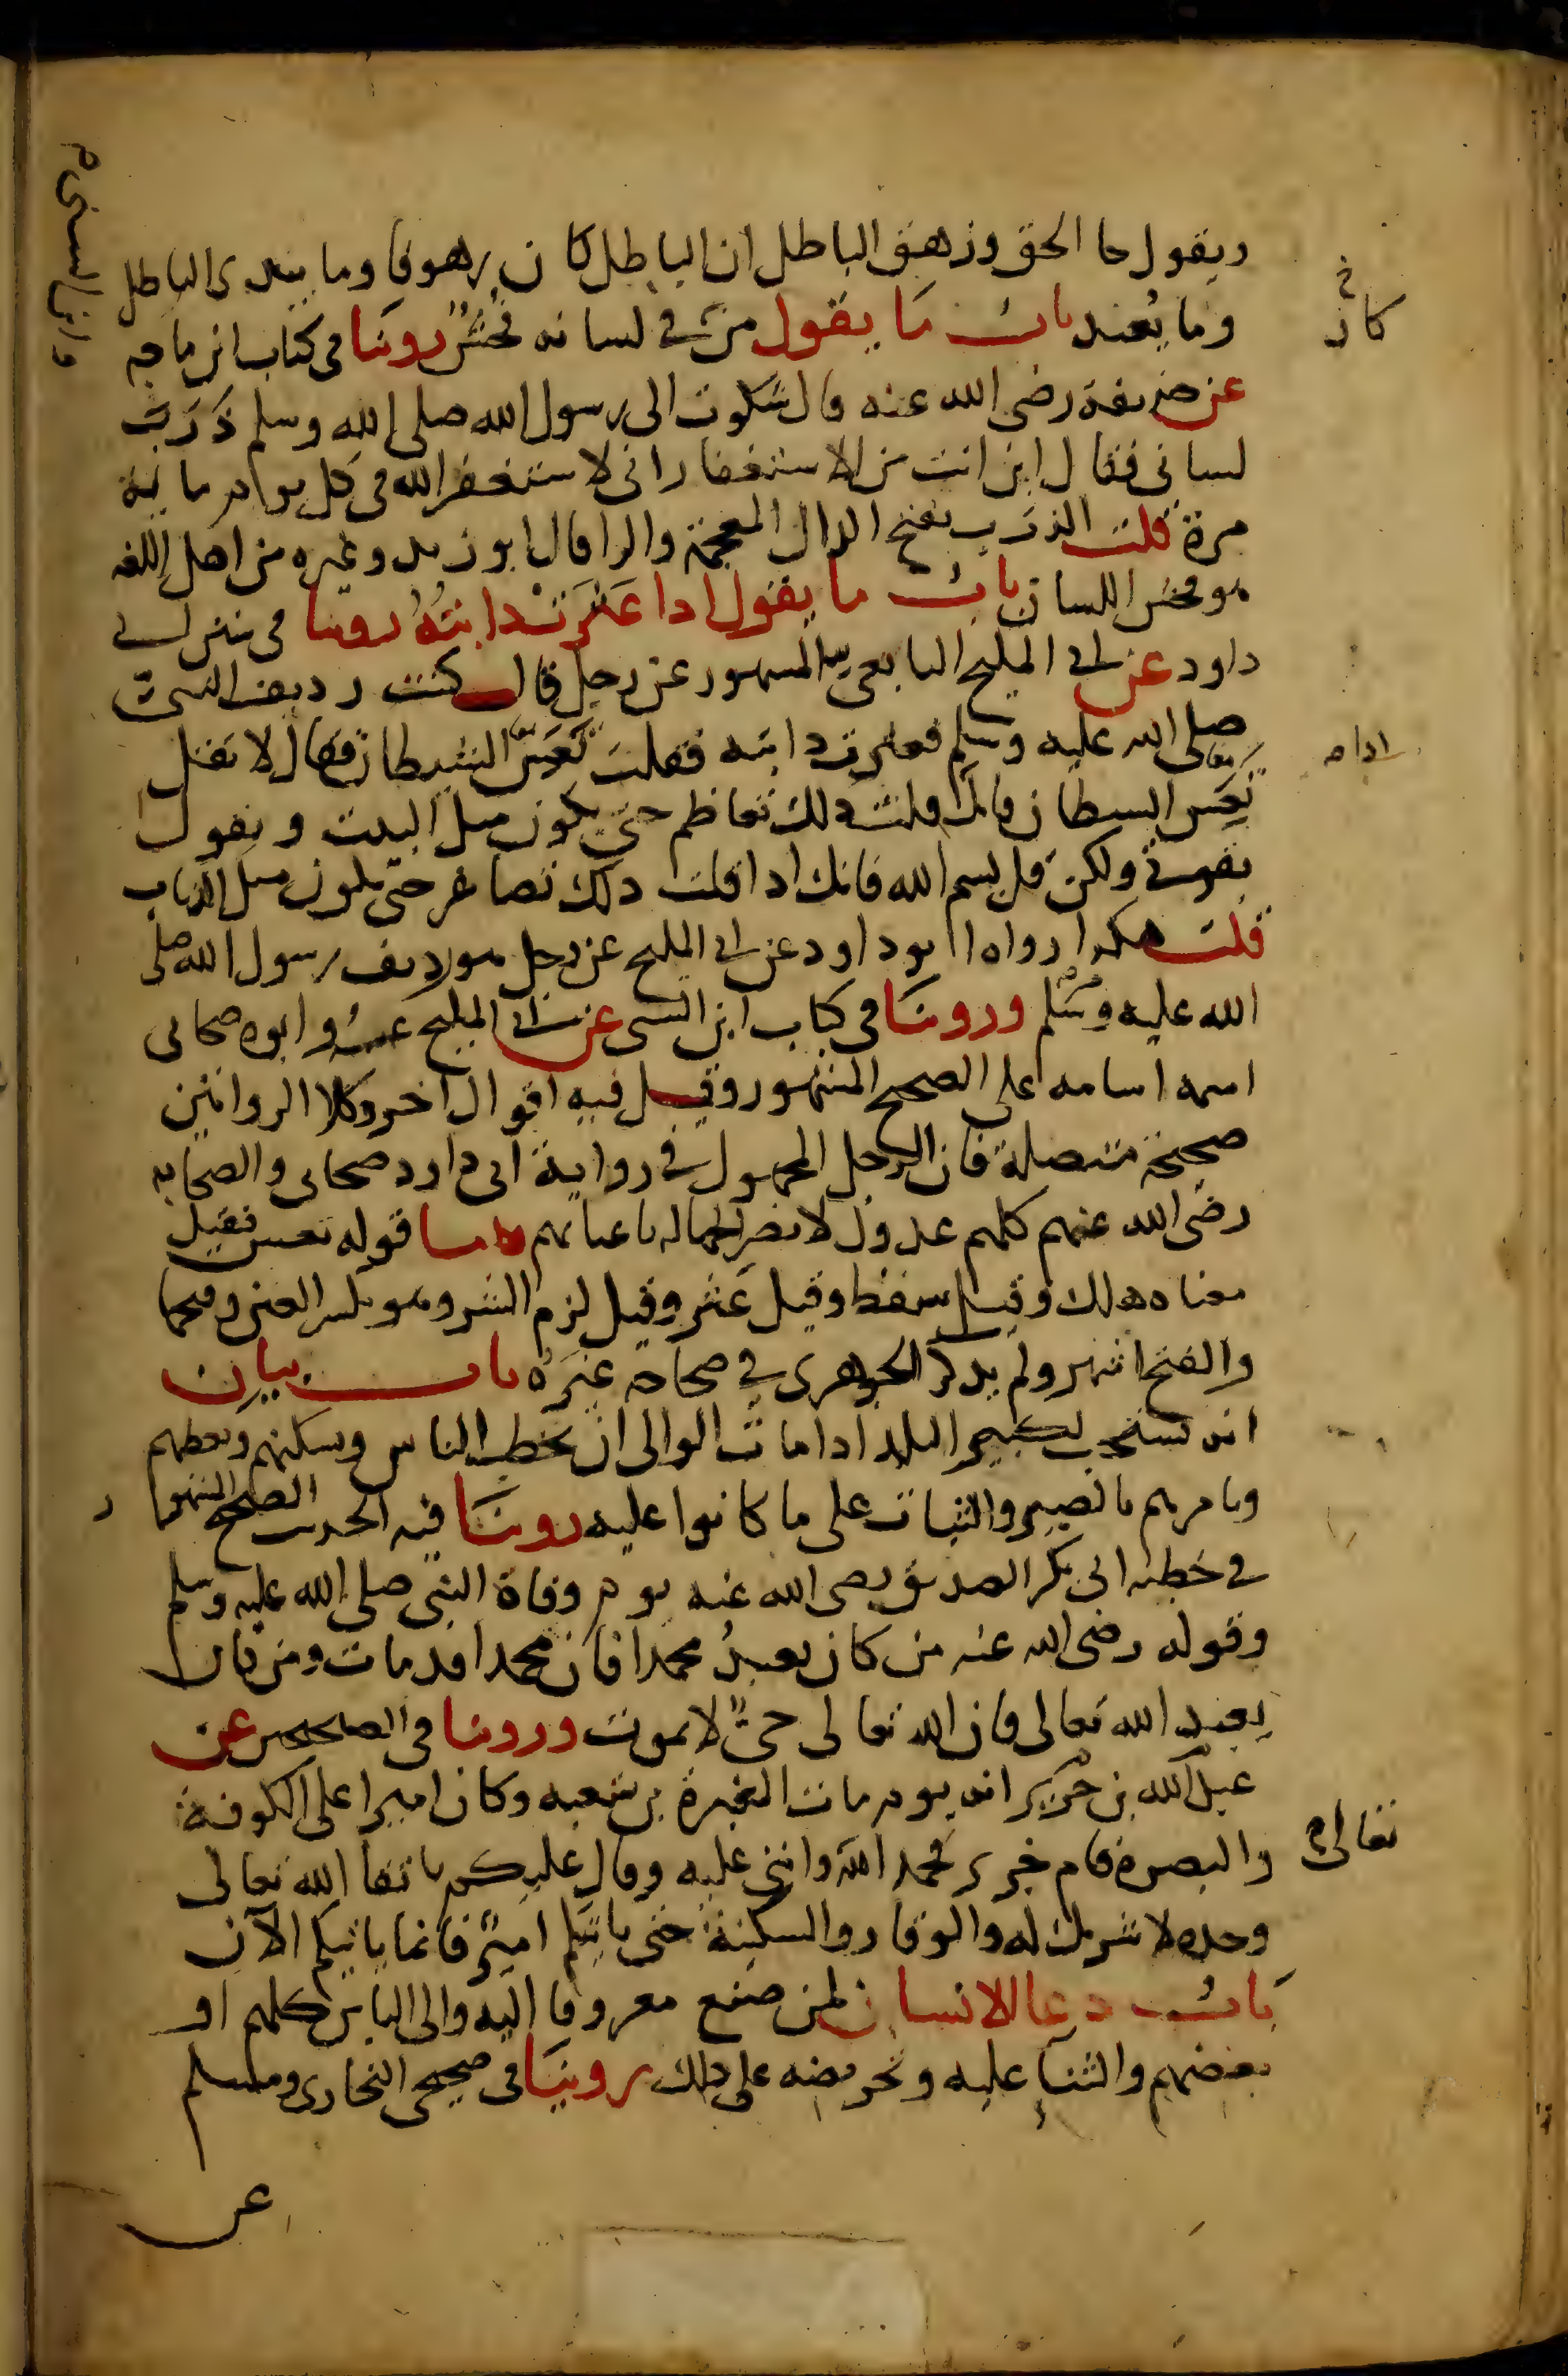 ويقول جا الحق وزهق الباطل ان الباطل كان زهوقا وما يبدى الباطل
وما يعيد باب ما يقول من في لسانه فحش روينا في كتاب ابن ماجه
وابن السنى م
عن حذيفة رضى الله عنه قال شكوت الى رسول الله صلى الله وسلم ذَرَبَ
لسانى فقال اين انت من الاستغفار انى لاستغفر الله في كل يوم مائة
مرة قلت الذرب بفتح الذال المعجمة والرا قال ابو زيد وغيره من اهل اللغه
هو فحش اللسان باب ما يقول اذا عَثَرَتْ دابتُهُ روينا في سنن ابي
داود عن ابي المليح التابعي المشهور عن رجل قال كنت رديف النبيّ
صلى الله عليه وسلم فعثرت دابته فقلت تَعَسَ الشيطان فقال لا تقل
تعس الشيطان فانك اذا قلت ذلك تعاظم حتى يكون مثل البيت ويقول
بقوتي ولكن قل بسم الله فانك اذا قلت ذلك تصاغر حتى يكون مثل الذباب
قلت هكذا رواه ابو داود عن ابي المليح عن رجل هو رديف رسول الله صلى
الله عليه وسلم وروينا في كتاب ابن السنى عن ابي المليح عن ابيه وابوه صحابى
اسمه اسامه على الصحيح المشهور وقيل فيه اقوال اخر وكلا الروايتين
صحيحة متصلة فان الرجل المجهول في رواية ابى داود صحابى والصحابه
رضى الله عنهم كلهم عدول لا تضر الجهاله باعيانهم واما قوله تعس فقيل
معناه هلك وقيل سقط وقيل عثر وقيل لزم الشر وهو بكسر العين وفتحها
والفتح اشهر ولم يذكر الجوهرى في صحاحه غيرَهُ باب بيان
انه يستحب لكبير البلد اذا مات الوالى ان يخطب الناس ويسكنهم ويعظهم
ويامرهم بالصبر والثبات على ما كانوا عليه روينا فيه الحديث الصحيح المشهور
في خطبة ابى بكر الصديق رضى الله عنه يوم وفاة النبي صلى الله عليه وسلم
وقوله رضى الله عنه من كان يعبدُ محمدا فان محمدا قد مات ومن كان
يعبد الله تعالى فان الله تعالى حىٌّ لا يموت وروينا في الصحيحين عن
عبد الله بن جرير انه يوم مات المغيرة بن شعبه وكان اميرا على الكوفة
والبصرة قام جرير فحمد الله واثنى عليه وقال عليكم باتقا الله تعالى
تعالى م
وحده لا شريك له والوقار والسكينة حتى ياتيكم اميرٌ فانما ياتيكم الآن
باب دعا الانسان لمن صنع معروفا اليه والى الناس كلهم او
بعضهم والثنآ عليه وتحريضه على ذلك روينا في صحيحى البخارى ومسلم
عن